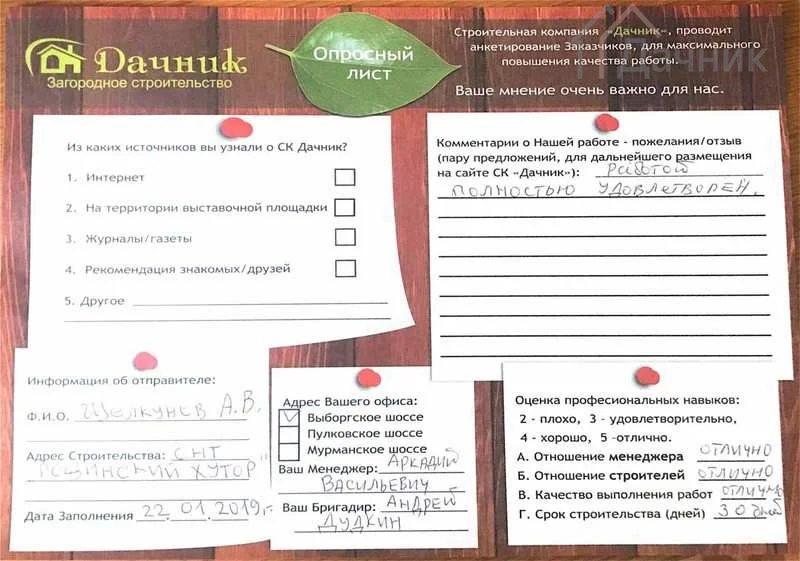 Дачник
Загородное строительство
Опросный
лист
Строительная компания «Дачник», проводит
анкетирование Заказчиков, для максимального
повышения качества работы.
Дачник
Ваше мнение очень важно для нас.
Из каких источников вы узнали о СК Дачник?
1. Интернет
2. На территории выставочной площадки
3. Журналы/газеты
4. Рекомендация знакомых/друзей
5. Другое
Комментарии о Нашей работе - пожелания/отзыв
(пару предложений, для дальнейшего размещения
на сайте СК «Дачник»): Работой
полностью удовлетворен.
Информация об отправителе:
Ф.И.О. Щелкунов А.В.
Адрес Строительства: СНТ
Рощинский хутор
Дата Заполнения 22.01.2019г.
Адрес Вашего офиса:
Выборгское шоссе
Пулковское шоссе
Мурманское шоссе
Ваш Менеджер: Аркадий
Васильевич
Ваш Бригадир: Андрей
Дудкин
Оценка профессиональных навыков:
2 - плохо, 3 - удовлетворительно,
4 - хорошо, 5 -отлично.
А. Отношение менеджера отлично
Б. Отношение строителей отлично
В. Качество выполнения работ отлично
Г. Срок строительства (дней) 30 дней